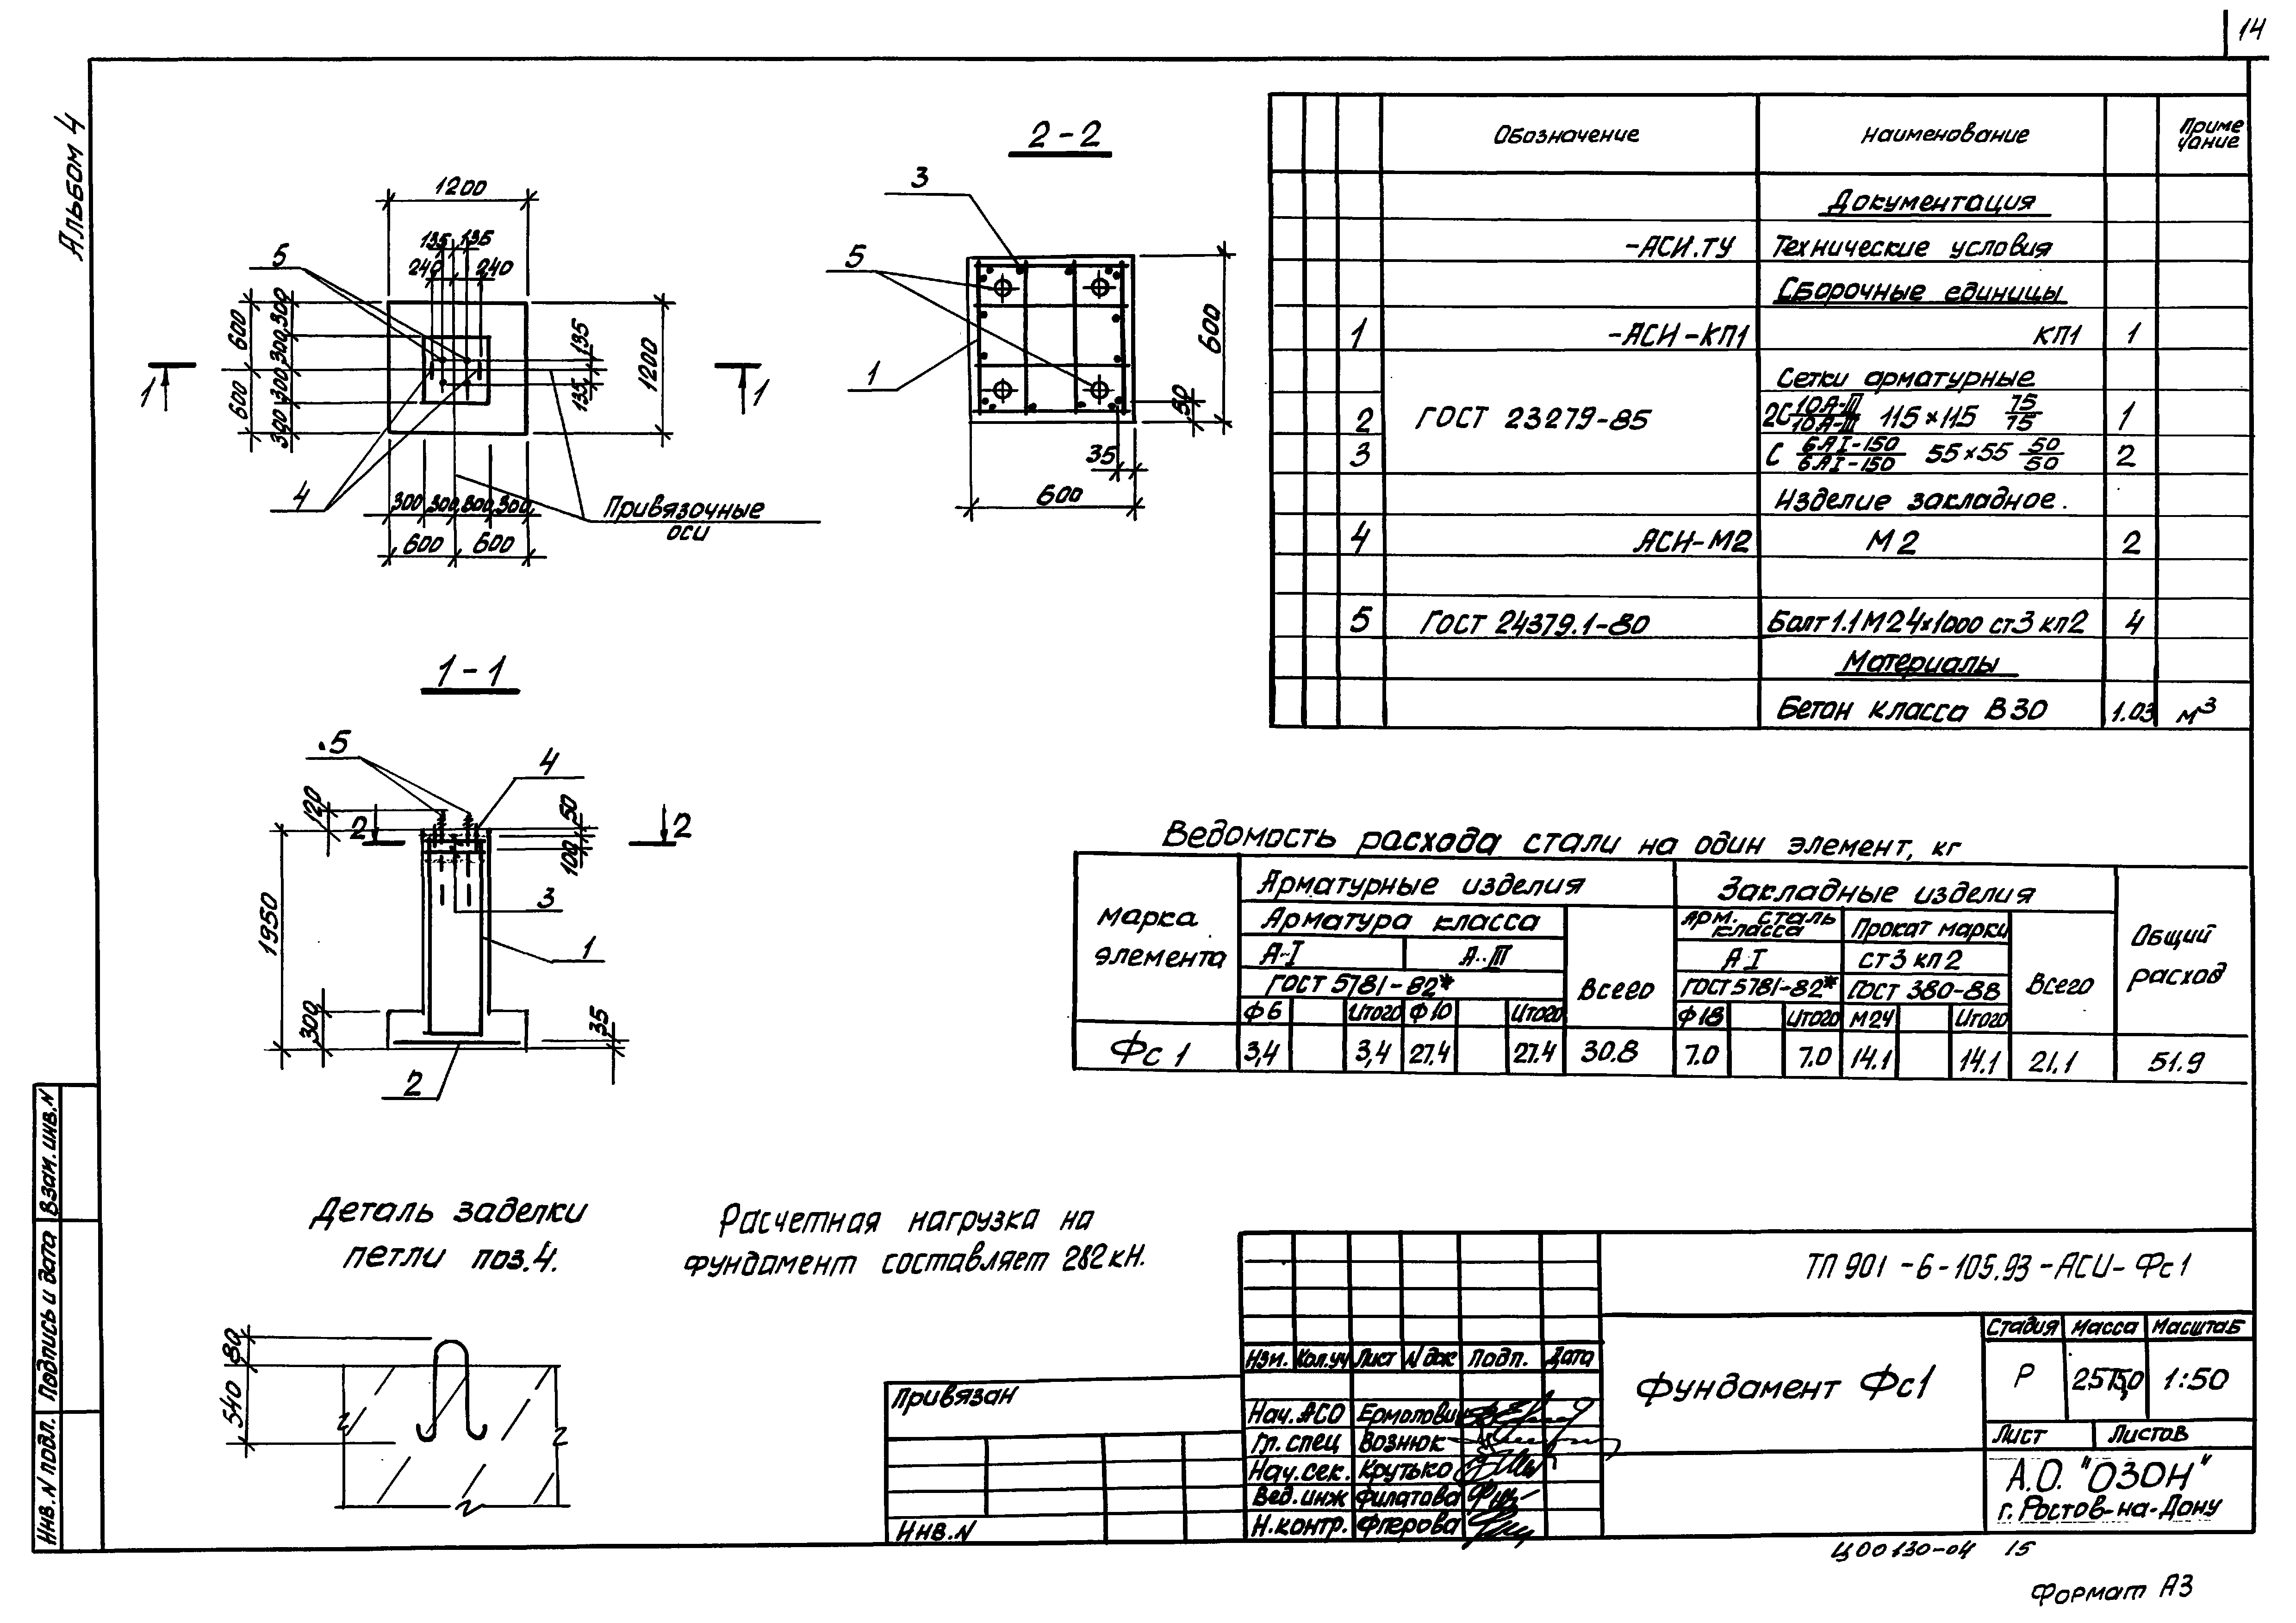 14
Альбом 4
1200
135 135
240 240
5
600 600
300 300 300 300
135
135
1200
1 1
4
300 300 300 300
600 600
Привязочные
оси
2-2
3
5
1
600
50
35
600
Обозначение Наименование Приме
чание
Документация
-АСИ.ТУ Технические условия
Сборочные единицы
1 -АСИ-КП1 КП1 1
Сетки арматурные
2 ГОСТ 23279-85 2С 10А-III/10А-III 115×115 75/75 1
3 С 6АI-150/6АI-150 55×55 50/50 2
Изделие закладное.
4 АСИ-М2 М2 2
5 ГОСТ 24379.1-80 Болт 1.1 М24×1000 ст3 кп2 4
Материалы
Бетон класса В30 1.03 м³
1-1
5
4
120
2 2
50
100
3
1950
1
300
35
2
Ведомость расхода стали на один элемент, кг
Марка
элемента
Арматурные изделия
Арматура класса
А-I А-III
ГОСТ 5781-82*
Ф6 Итого Ф10 Итого
Всего
Закладные изделия
Арм. сталь
класса
АI
ГОСТ 5781-82*
Ф18 Итого
Прокат марки
ст3 кп2
ГОСТ 380-88
М24 Итого
Всего
Общий
расход
Фс 1 3,4 3,4 27.4 27.4 30.8 7.0 7.0 14.1 14.1 21.1 51.9
Деталь заделки
петли поз.4.
80
540
Расчетная нагрузка на
фундамент составляет 282 кН.
Взам. инв. N
Подпись и дата
Инв. N подл.
Привязан
Инв. N
Изм. Кол.уч Лист N док Подп. Дата
Нач. АСО Ермолович
Гл. спец Вознюк
Нач. сек. Крутько
Вед. инж Филатова
Н. контр.
ТП 901-6-105.93-АСИ-Фс1
Фундамент Фс1
Стадия Масса Масштаб
Р 1:50
Лист Листов
А.О. "ОЗОН"
г. Ростов-на-Дону
Ц00130-04 15
Формат А3